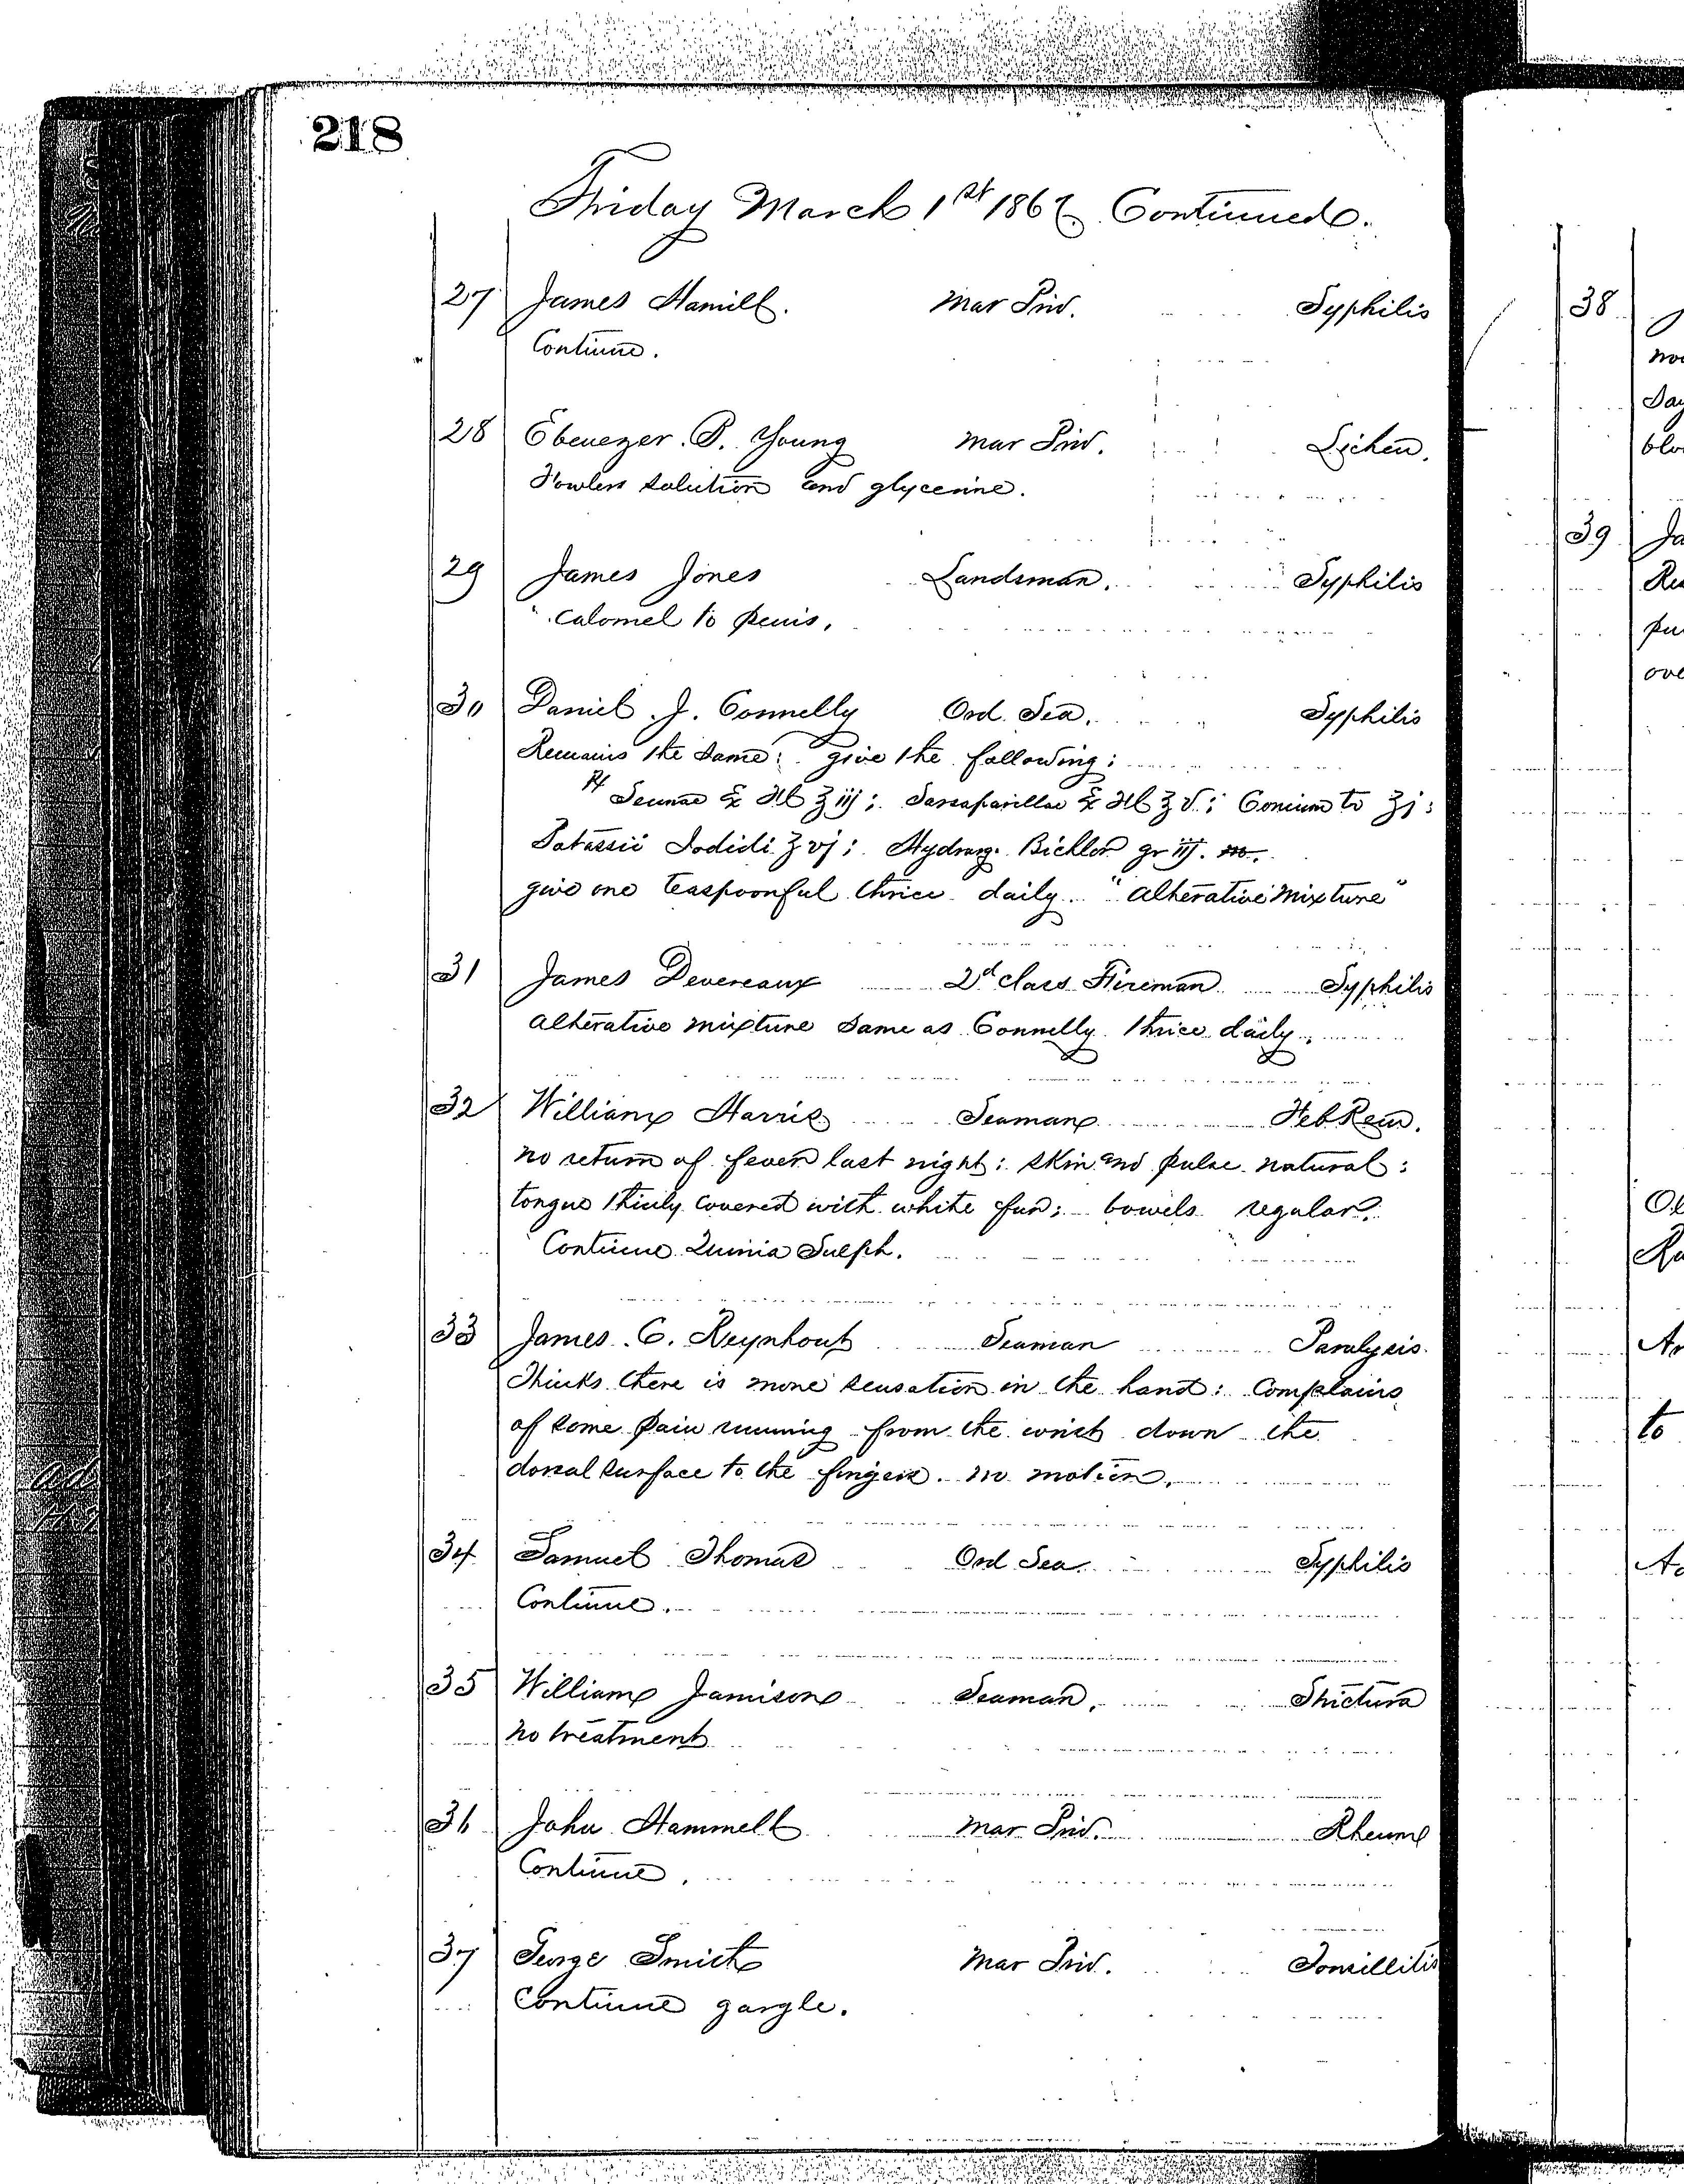 218
Friday March 1st 1867 Continued.
27 James Hamill. Mar Priv. Syphilis
Continue.
28 Ebenezer. P. Young Mar Priv. Lichen.
Fowlers solution and glycerine.
29 James Jones Landsman. Syphilis
Calomel to penis.
30 Daniel J. Connelly Ord. Sea. Syphilis
Remains the same: give the following:
℞ Sennae Ex Fld ℥ iij: Sarsaparillae Ex Fld ℥ v: Conium to ℥j:
Potassii Iodidi ʒ vj: Hydrarg. Bichlor gr iij. m.
give one teaspoonful thrice daily. "Altherative Mixture"
31 James Devereaux 2d class Fireman Syphilis
Altherative mixture same as Connelly thrice daily.
32 William Harris Seaman Feb Rem.
no return of fever last night: skin and pulse natural:
tongue thinly covered with white fur: bowels regular.
Continue Quinia Sulph.
33 James. C. Reynhout Seaman Paralysis.
Thinks there is more sensation in the hand: Complains
of some pain running from the wrist down the
dorsal surface to the fingers. no motion.
34 Samuel Thomas Ord Sea. Syphilis
Continue.
35 William Jamison Seaman. Strictura
no treatment
36 John Hammell Mar Priv. Rheum
Continue.
37 George Smith Mar Priv. Tonsillitis
Continue gargle.
38
39
to